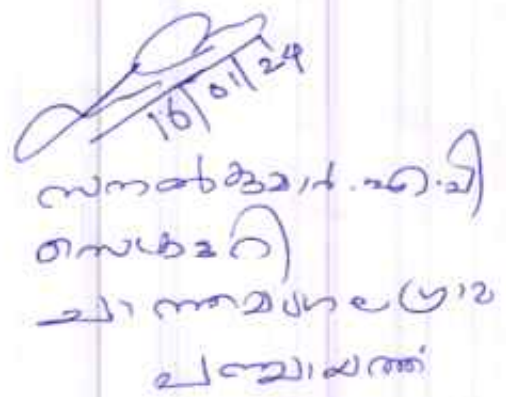 16/01/24
സനൽകുമാർ.എ.വി
സെക്രട്ടറി
ചാത്തമംഗലം ഗ്രാമ
പഞ്ചായത്ത്